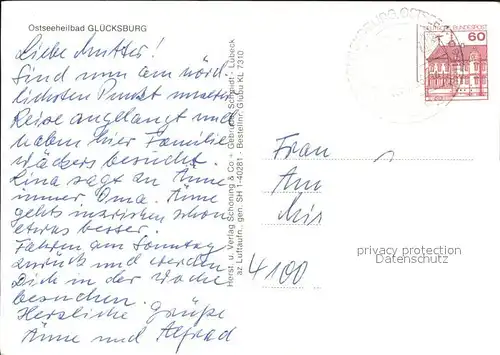 Ostseeheilbad GLÜCKSBURG
Liebe Mutter!
Sind nun am nörd-
lichsten Punkt unserer
Reise angelangt und
haben hier Familie
Wäckers besucht.
Lina sagt an Änne
immer, Oma. Änne
gehts inzwischen schon
etwas besser.
Fahren am Sonntag
zurück und werden
Dich in der Woche
besuchen.
Herzliche Grüße
Änne und Alfred
Herst. u. Verlag Schöning & Co + Gebrüder Schmidt - Lübeck
az Luftaufn. gen. SH 1-40281 - Bestellnr. Glubu KL 7310
DEUTSCHE BUNDESPOST
60
Frau
Am
4100
privacy protection
Datenschutz